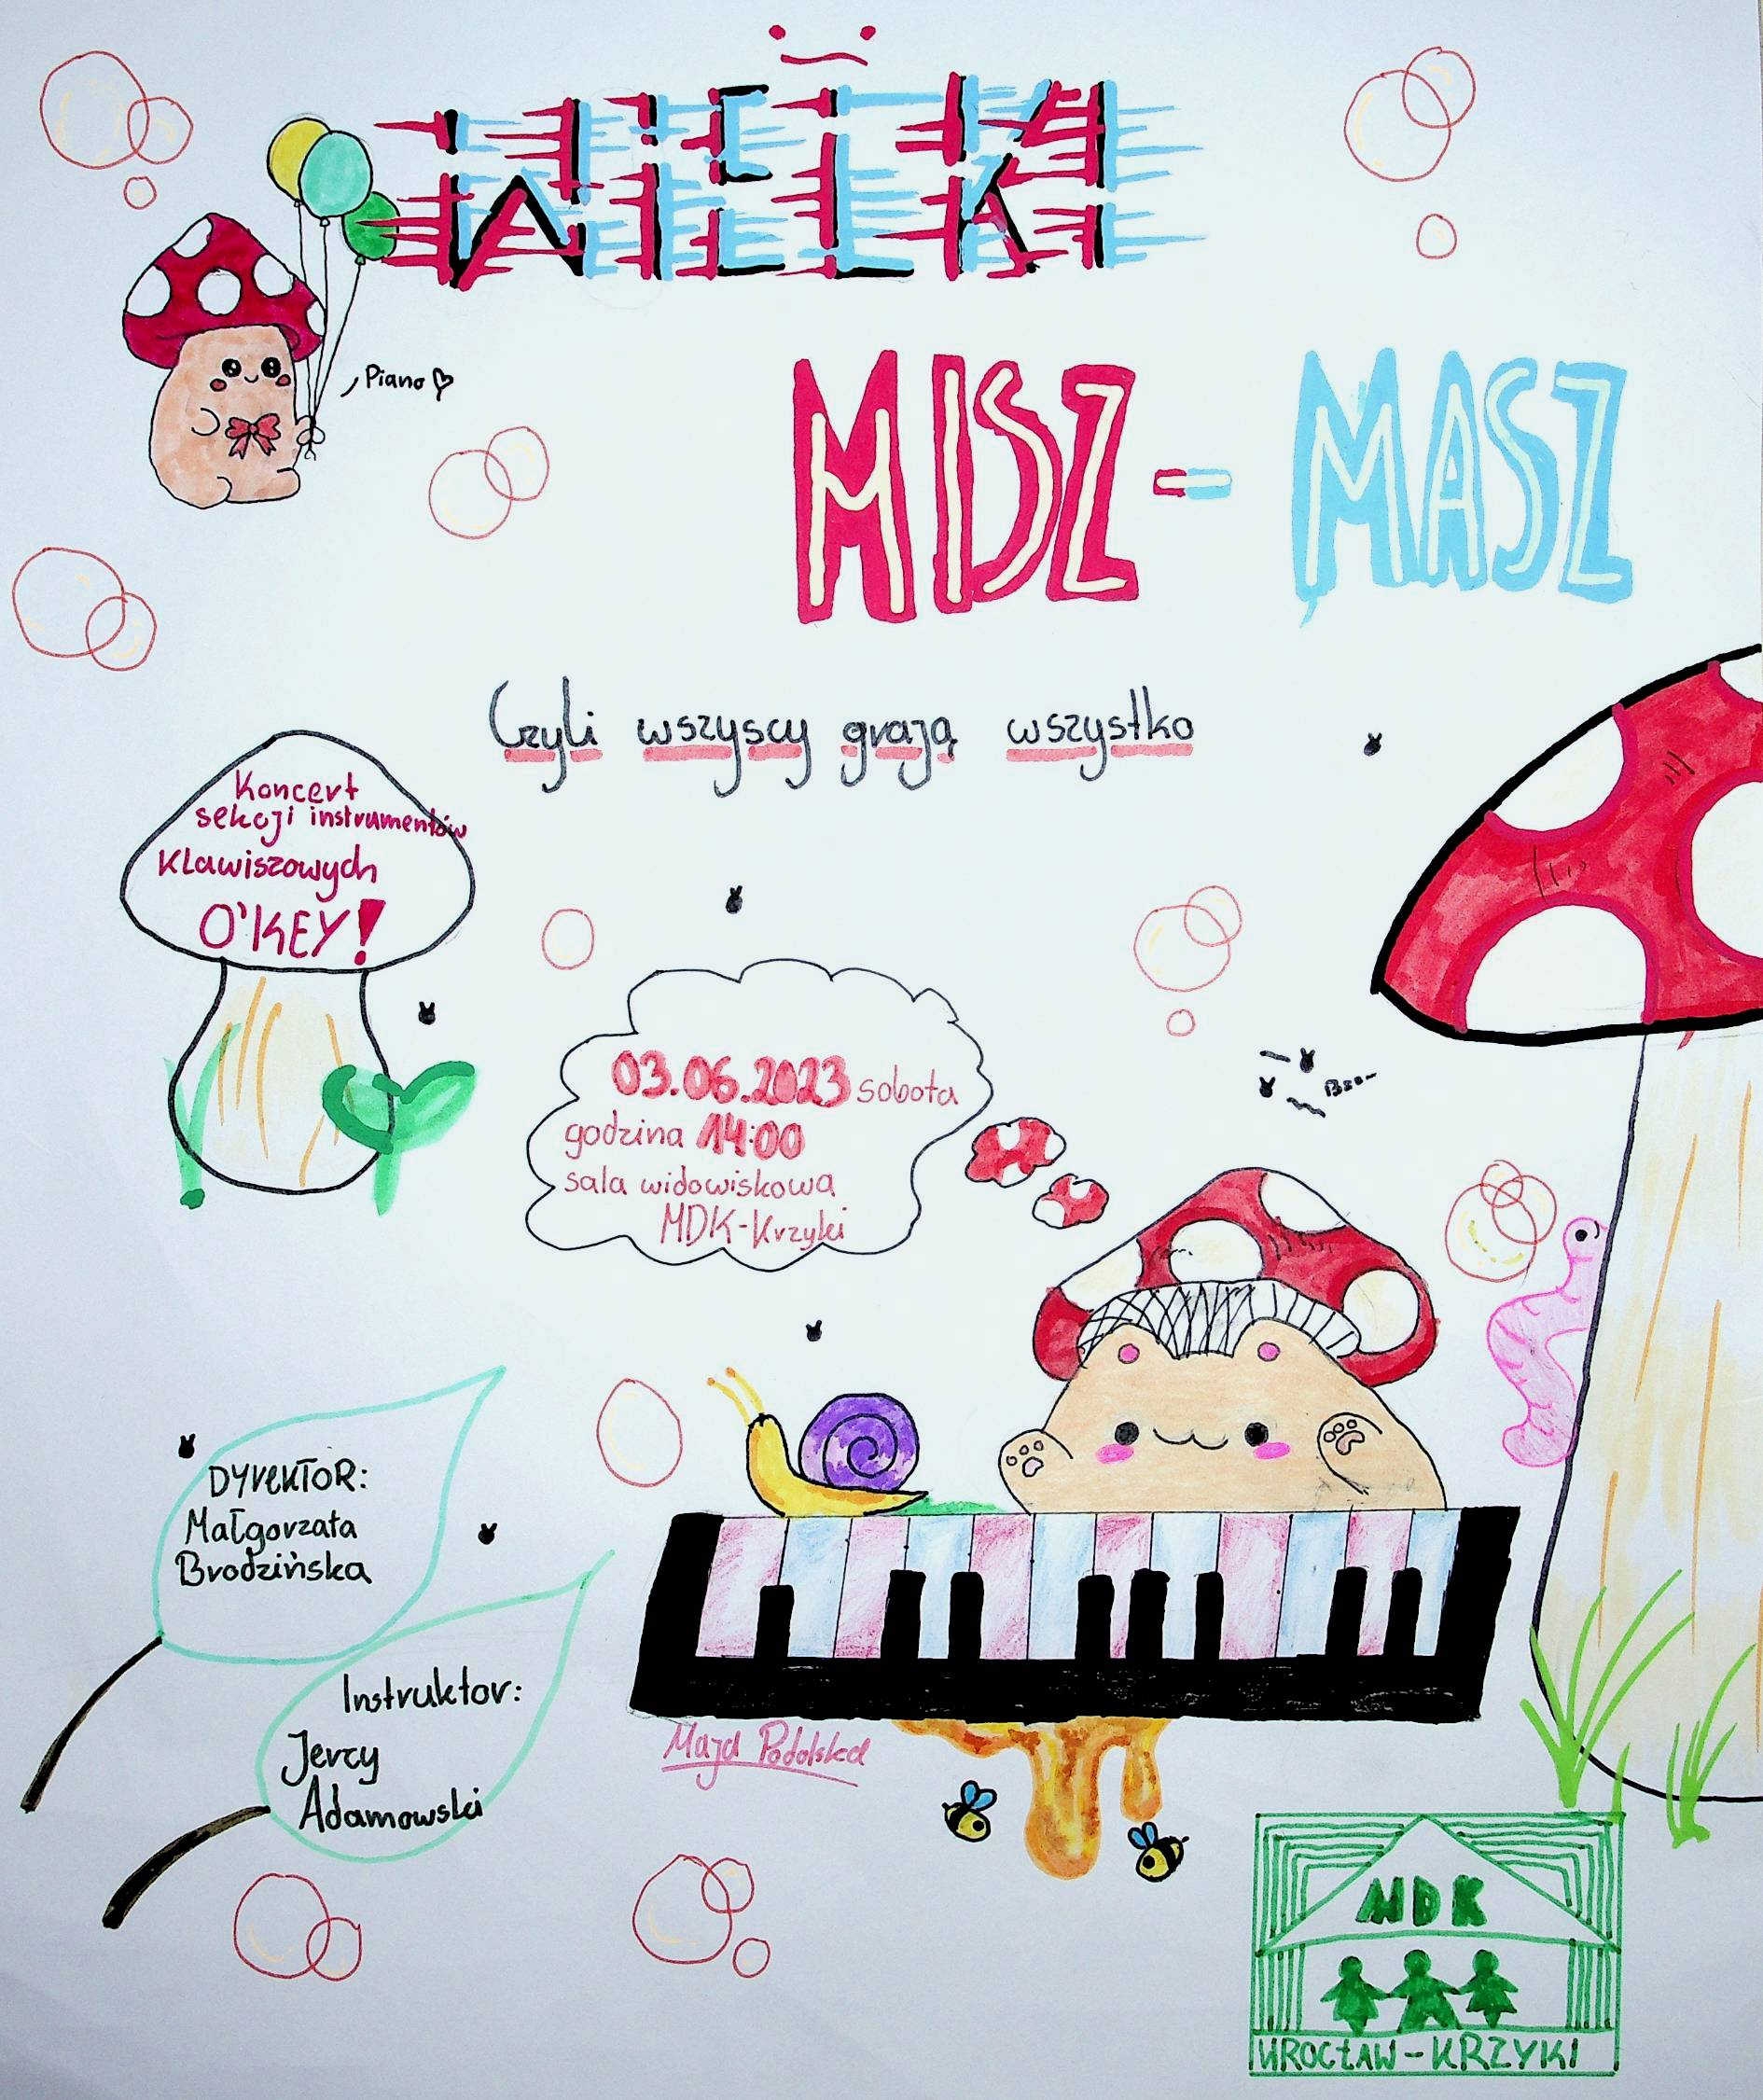 WIELKI
Piano
MISZ-MASZ
Czyli wszyscy grają wszystko
Koncert
sekcji instrumentów
klawiszowych
O'KEY!
03.06.2023 sobota
godzina 14:00
sala widowiskowa
MDK-Krzyki
Bzo~
DYreKToR:
Małgorzata
Brodzińska
Instruktor:
Jerzy
Adamowski
Maja Podolska
MDK
WROCŁAW-KRZYKI